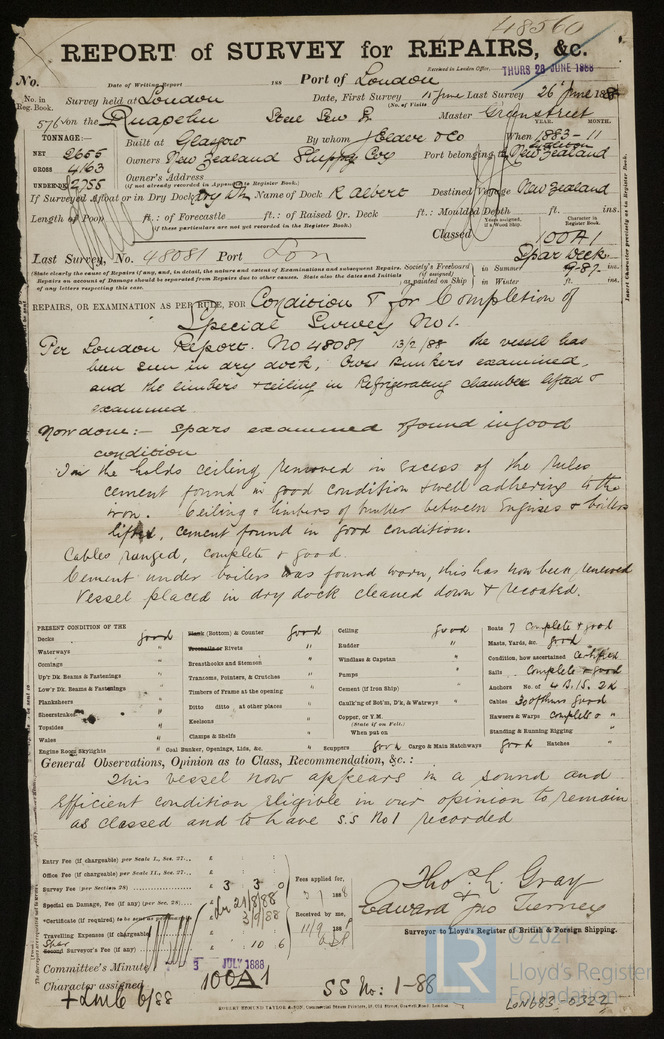 48560
REPORT of SURVEY for REPAIRS, &c.
Received in London Office, THURS 28 JUNE 1888
No. Date of Writing Report 188 Port of London
No. in Reg. Book. Survey held at London Date, First Survey 15 June Last Survey 26 June 1888
(No. of Visits
576 on the Ruapehu Steel Scw Sr. Master Greenstreet
TONNAGE:— Built at Glasgow By whom J Elder & Co When 1883 - 11
YEAR. MONTH.
NET 2655 Owners New Zealand Shippg Coy Port belonging to New Zealand
GROSS 4163 Owner's Address
(if not already recorded in Appendix to Register Book.)
UNDER DK 2755
If Surveyed Afloat or in Dry Dock Dry Dk Name of Dock R Albert Destined Voyage New Zealand
Length of Poop ft.: of Forecastle ft.: of Raised Qr. Deck ft.: Moulded Depth ft. ins.
(if these particulars are not yet recorded in the Register Book.)
Classed 100A1
Character in Register Book.
Last Survey, No. 48081 Port Lon Spar Deck
9-87
(State clearly the cause of Repairs if any, and, in detail, the nature and extent of Examinations and subsequent Repairs. Society's Freeboard in Summer ft. ins.
Repairs on account of Damage should be separated from Repairs due to other causes. State also the dates and Initials (if assigned)
of any letters respecting this case.) as painted on Ship in Winter ft. ins.
REPAIRS, OR EXAMINATION AS PER RULE, FOR Condition & for Completion of
Special Survey No 1.
Per London Report No 48081 13/2/88 the vessel has
been seen in dry dock, Cross Bunkers examined,
and the limbers & ceiling in Refrigerating chamber lifted &
examined
Now done:— Spars examined & found in good
condition
In the holds ceiling removed in excess of the rules
cement found in good condition & well adhering to the
iron. Ceiling & limbers of bunker between Engines & boilers
lifted, cement found in good condition.
Cables ranged, complete & good.
Cement under boilers was found worn, this has now been renewed
Vessel placed in dry dock cleaned down & recoated.
PRESENT CONDITION OF THE
Decks good
Waterways "
Comings "
Up'r Dk Beams & Fastenings "
Low'r Dk. Beams & Fastenings "
Planksheers "
Sheerstrakes "
Topsides "
Wales "
Engine Room Skylights "
Plank (Bottom) & Counter good
Treenails or Rivets "
Breasthooks and Stemson "
Transoms, Pointers, & Crutches "
Timbers of Frame at the opening "
Ditto ditto at other places "
Keelsons "
Clamps & Shelfs "
Coal Bunker, Openings, Lids, &c. "
Ceiling good
Rudder "
Windlass & Capstan "
Pumps "
Cement (if from Ship) "
Caulk'ng of Bot'm, D'k, & Watrwys "
Copper, or Y.M.
(State if on Felt.)
When put on
Scuppers good Cargo & Main Hatchways good Hatches "
Boats 7 Complete & good
Masts, Yards, &c. good
Condition, how ascertained Certified
Sails Complete & good
Anchors No. of 4 B. 1S. 2K
Cables 300 fthms good
Hawsers & Warps complete & "
Standing & Running Rigging "
General Observations, Opinion as to Class, Recommendation, &c.:
This vessel now appears in a sound and
Efficient condition Eligible in our opinion to remain
as classed and to have S.S No 1 recorded
Entry Fee (if chargeable) per Scale I., Sec. 27... £
Office Fee (if chargeable) per Scale II., Sec. 27... £
Survey Fee (per Section 28) £ 3 3 0
Special on Damage, Fee (if any) (per Sec. 28)
*Certificate (if required) to be sent as per margin
Travelling Expenses (if chargeable)
Second Surveyor's Fee (if any) 10 6
21/8/88
3/9/88
Fees applied for, 188
Received by me, 11/9 188
Tho. L. Gray
Edward Jno Tierney
Surveyor to Lloyd's Register of British & Foreign Shipping.
Committee's Minute 3 JULY 1888
Character assigned 100A1
+LMC 6/88 SS No: 1-88
© 2021
LR
Lloyd's Register
Foundation
LON683-0322